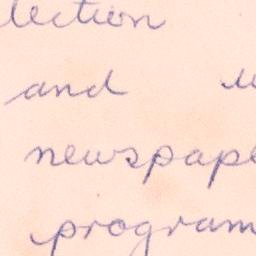 lection
and
newspape
program